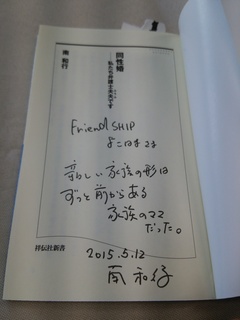 同性婚
―私たち弁護士夫夫です
南 和行
Friend SHIP
よこはまさま
新しい家族の形は
ずっと前からある
家族のママ
だった。
祥伝社新書
2015.5.12
南 和行